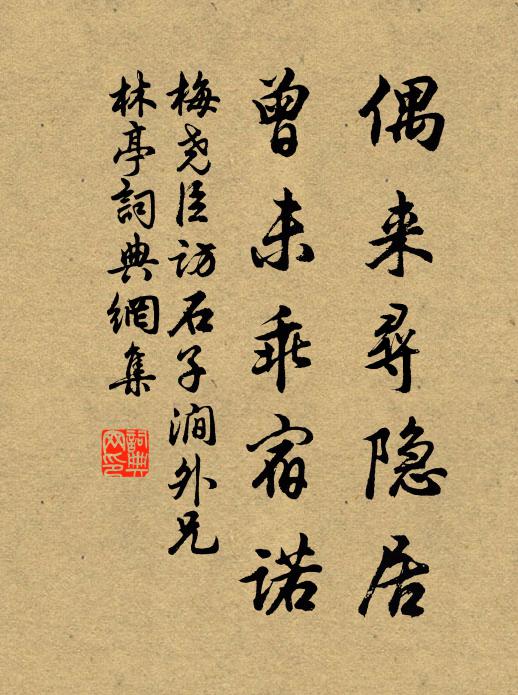 偶来尋隐居
曾未乖宿诺
梅尧臣访石子涧外兄
林亭詞典網集
詞典网印